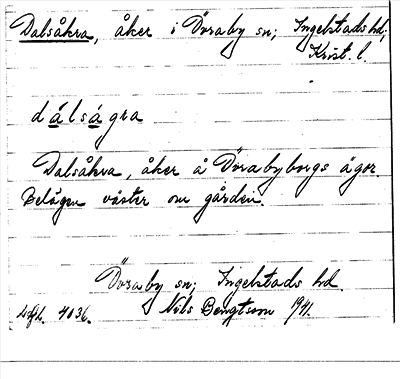 Dalsåkra, åker i Öraby sn; Ingelstads hd;
Krist. l.
dálságra
Dalsåkra, åker å Örabyborgs ägor.
Belägen väster om gården.
Öraby sn; Ingelstads hd.
4036. Nils Bengtsson 1941.